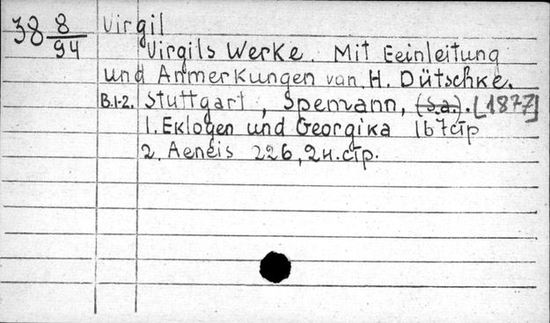 38 8/94 Virgil
Virgils Werke. Mit Eeinleitung
und Anmerkungen von H. Dütschke.
B.1-2. Stuttgart, Spemann, (S.a.). [1877]
1. Eklogen und Georgika 167 стр
2. Aeneis 226, 2н. стр.